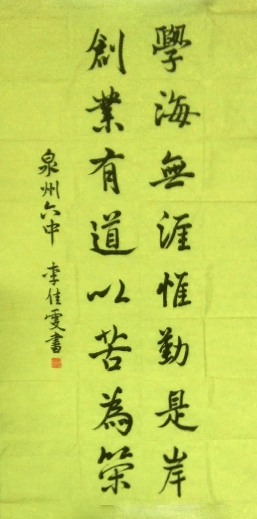 學海無涯惟勤是岸
創業有道以苦為榮
泉州六中 李佳雯書